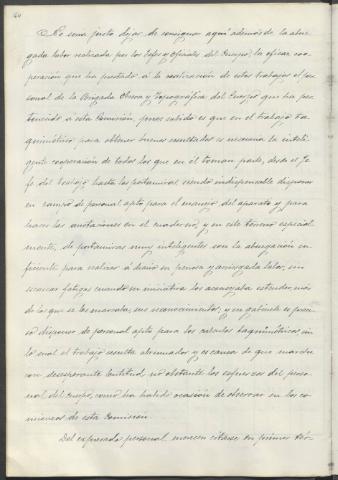 No sería justo dejar de consignar aquí además de la abne-
gada labor realizada por los Jefes y Oficiales del Cuerpo, la eficaz coo-
peración que ha prestado á la realización de estos trabajos el per-
sonal de la Brigada Obrera y Topográfica del Cuerpo que ha per-
tenecido á esta Comisión, pues sabido es que en el trabajo ta-
quimétrico, para obtener buenos resultados es necesaria la inteli-
gente cooperación de todos los que en él toman parte, desde el Je-
fe del trabajo hasta los portamiras, siendo indispensable disponer
en campo de personal apto para el manejo del aparato y para
hacer las anotaciones en el cuaderno, y en este terreno especial-
mente, de portamiras muy inteligentes con la abnegación su-
ficiente para realizar á diario su penosa y arriesgada labor, sin
escasear fatigas cuando su iniciativa les aconsejaba extender, más
de lo que se les marcaba, sus reconocimientos; y en gabinete es preci-
so disponer de personal apto para los cálculos taquimétricos, sin
lo cual el trabajo resulta abrumador y es causa de que marche
con desesperante lentitud, no obstante los esfuerzos del perso-
nal del Cuerpo, como ha habido ocasión de observar en los co-
mienzos de esta Comisión.
Del expresado personal merecen citarse en primer tér-